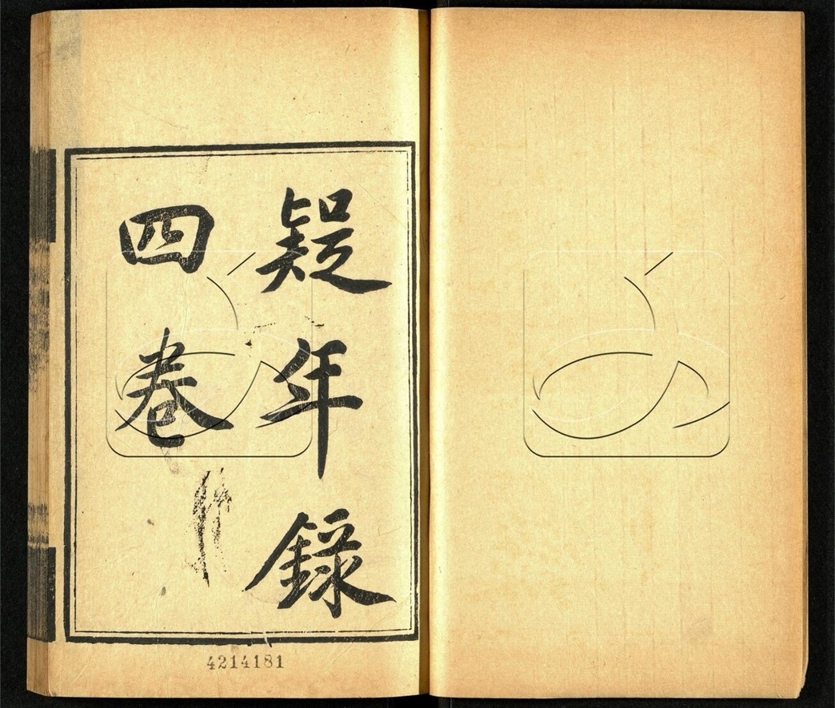 疑年錄
四卷
4214181